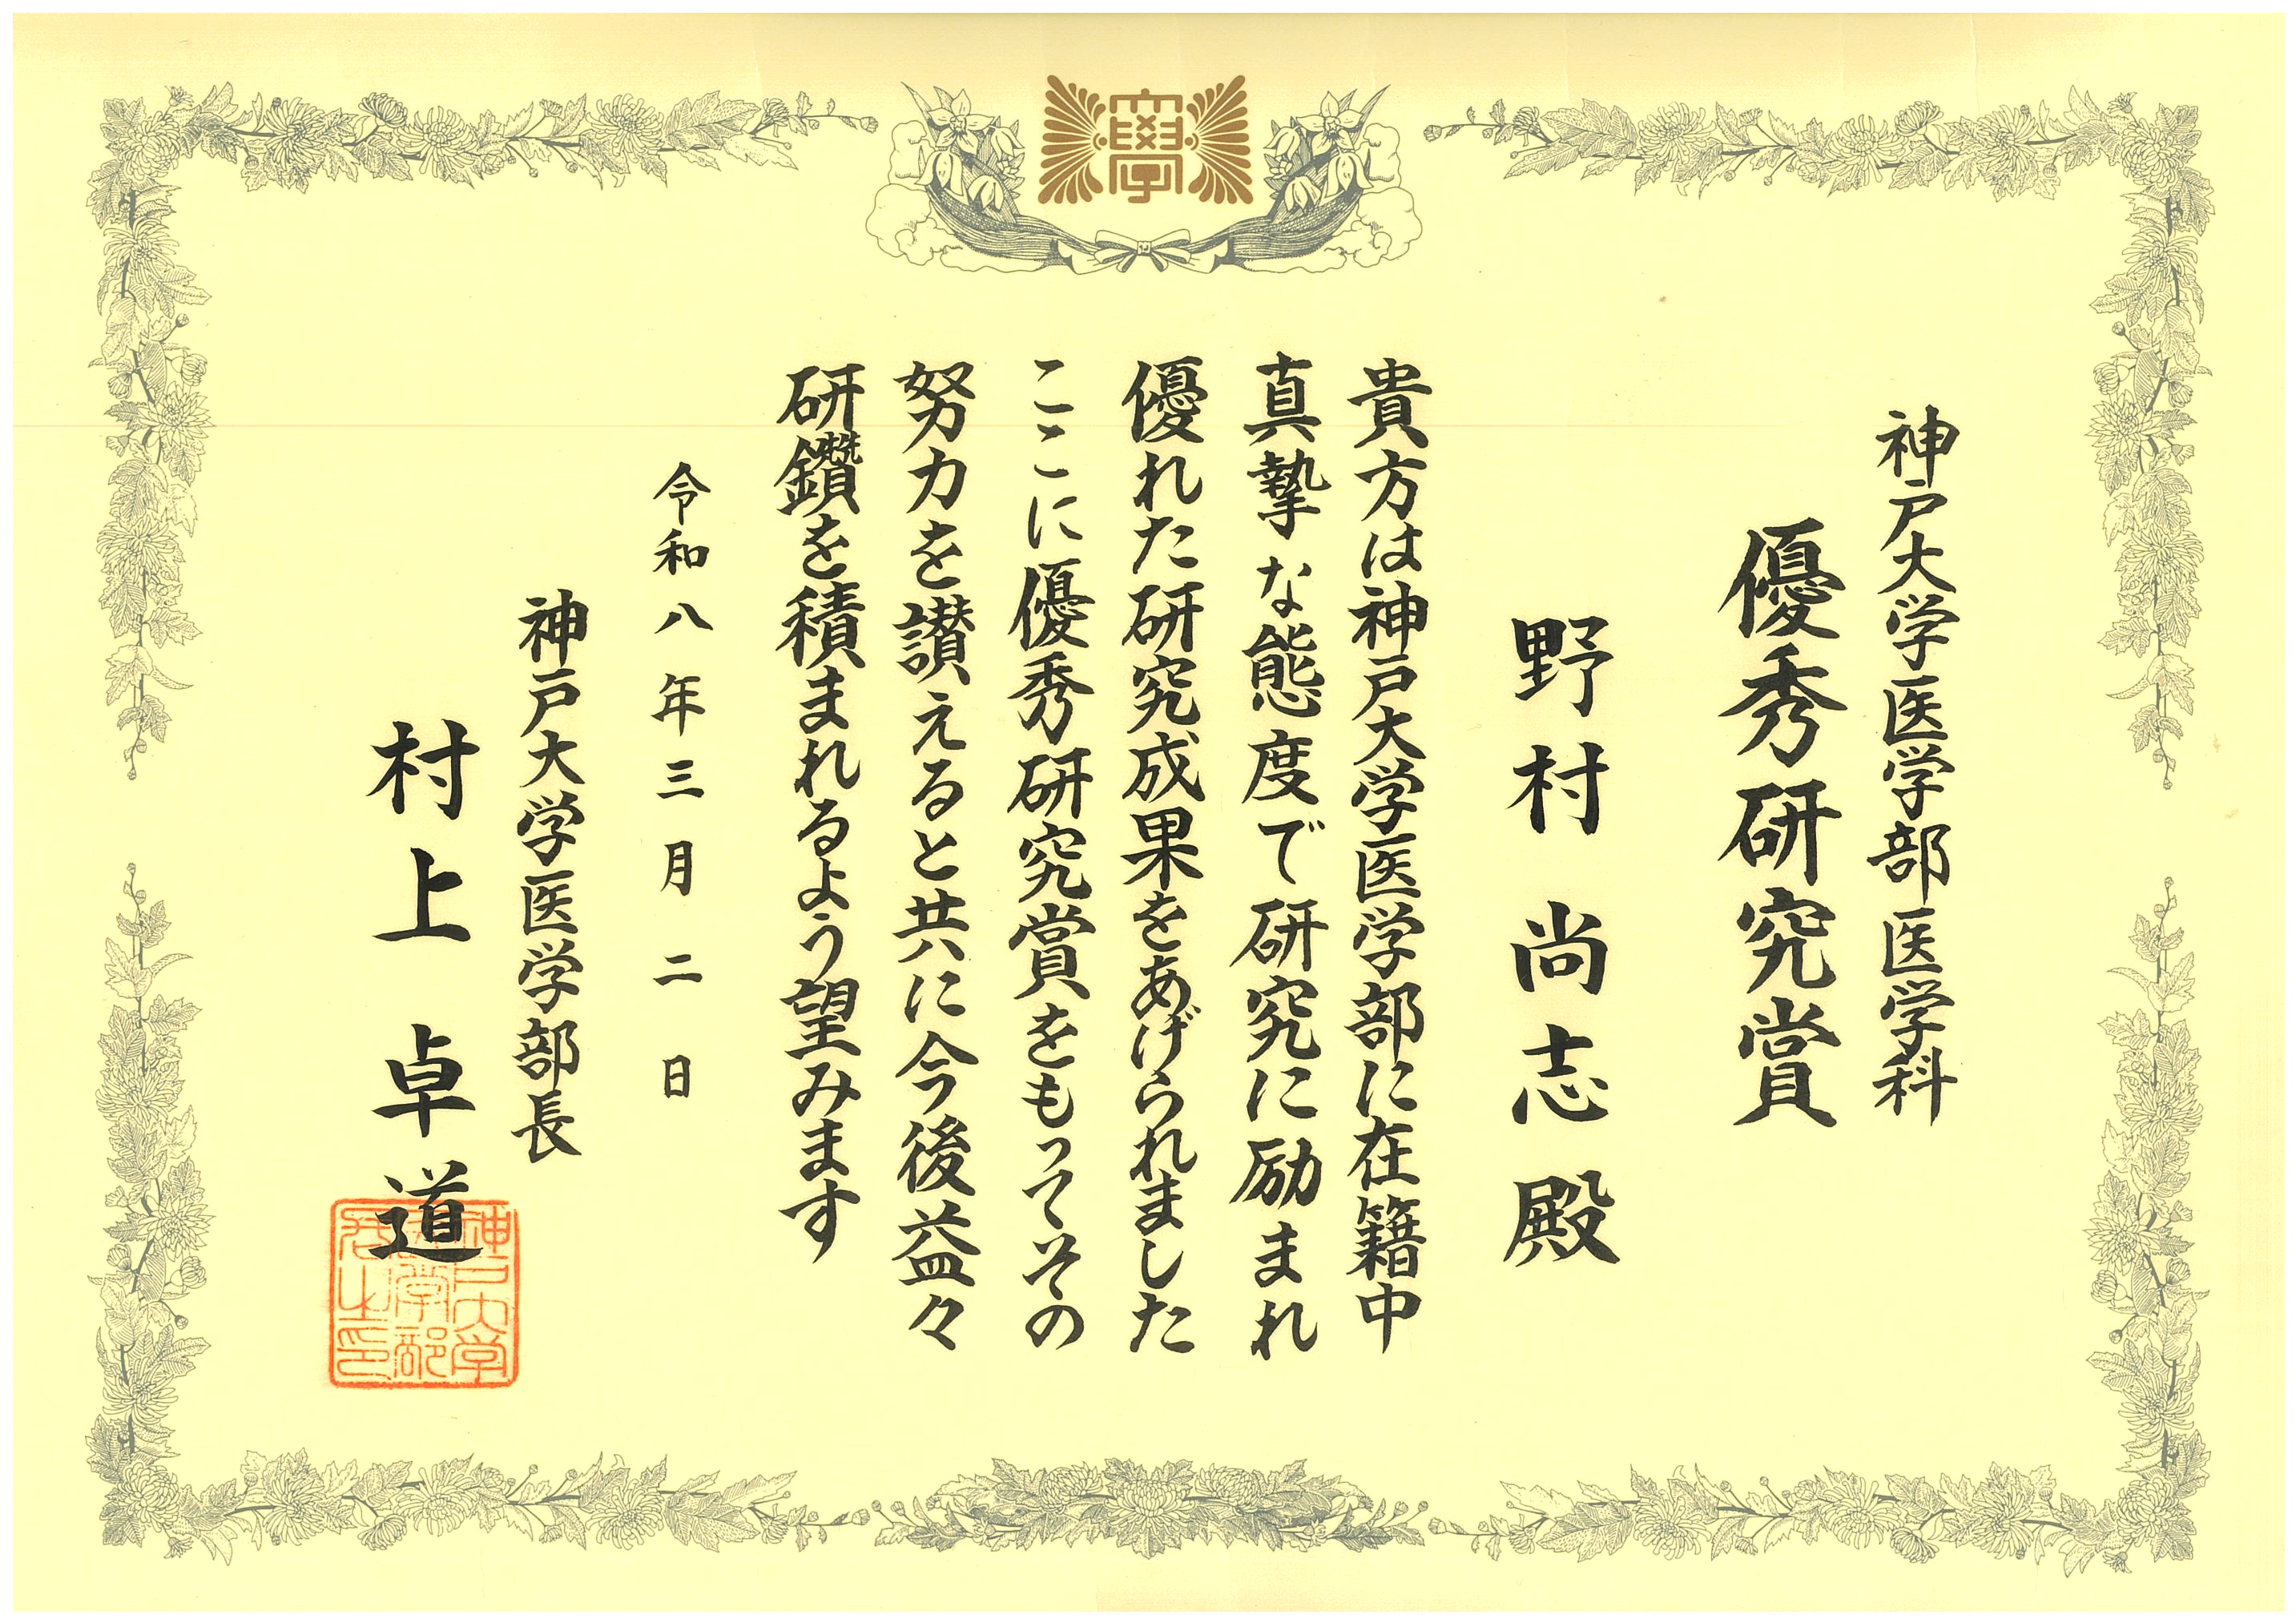 學
神戸大学医学部医学科
優秀研究賞
野村尚志殿
貴方は神戸大学医学部に在籍中
真摯な態度で研究に励まれ
優れた研究成果をあげられました
ここに優秀研究賞をもってその
努力を讃えると共に今後益々
研鑽を積まれるよう望みます
令和八年三月二日
神戸大学医学部長
村上卓道
神戸大学
医学部
長之印